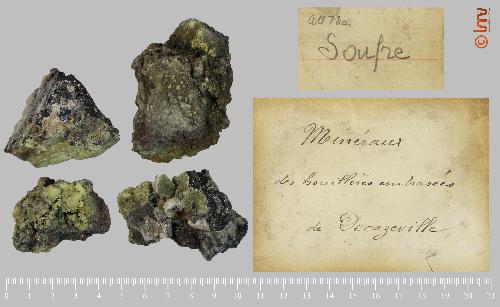 Soufre
Minéraux
des houillères embrasées
de Decazeville
0 1 2 3 4 5 6 7 8 9 10 11 12 13 14 15 16 17 18 19 20 21